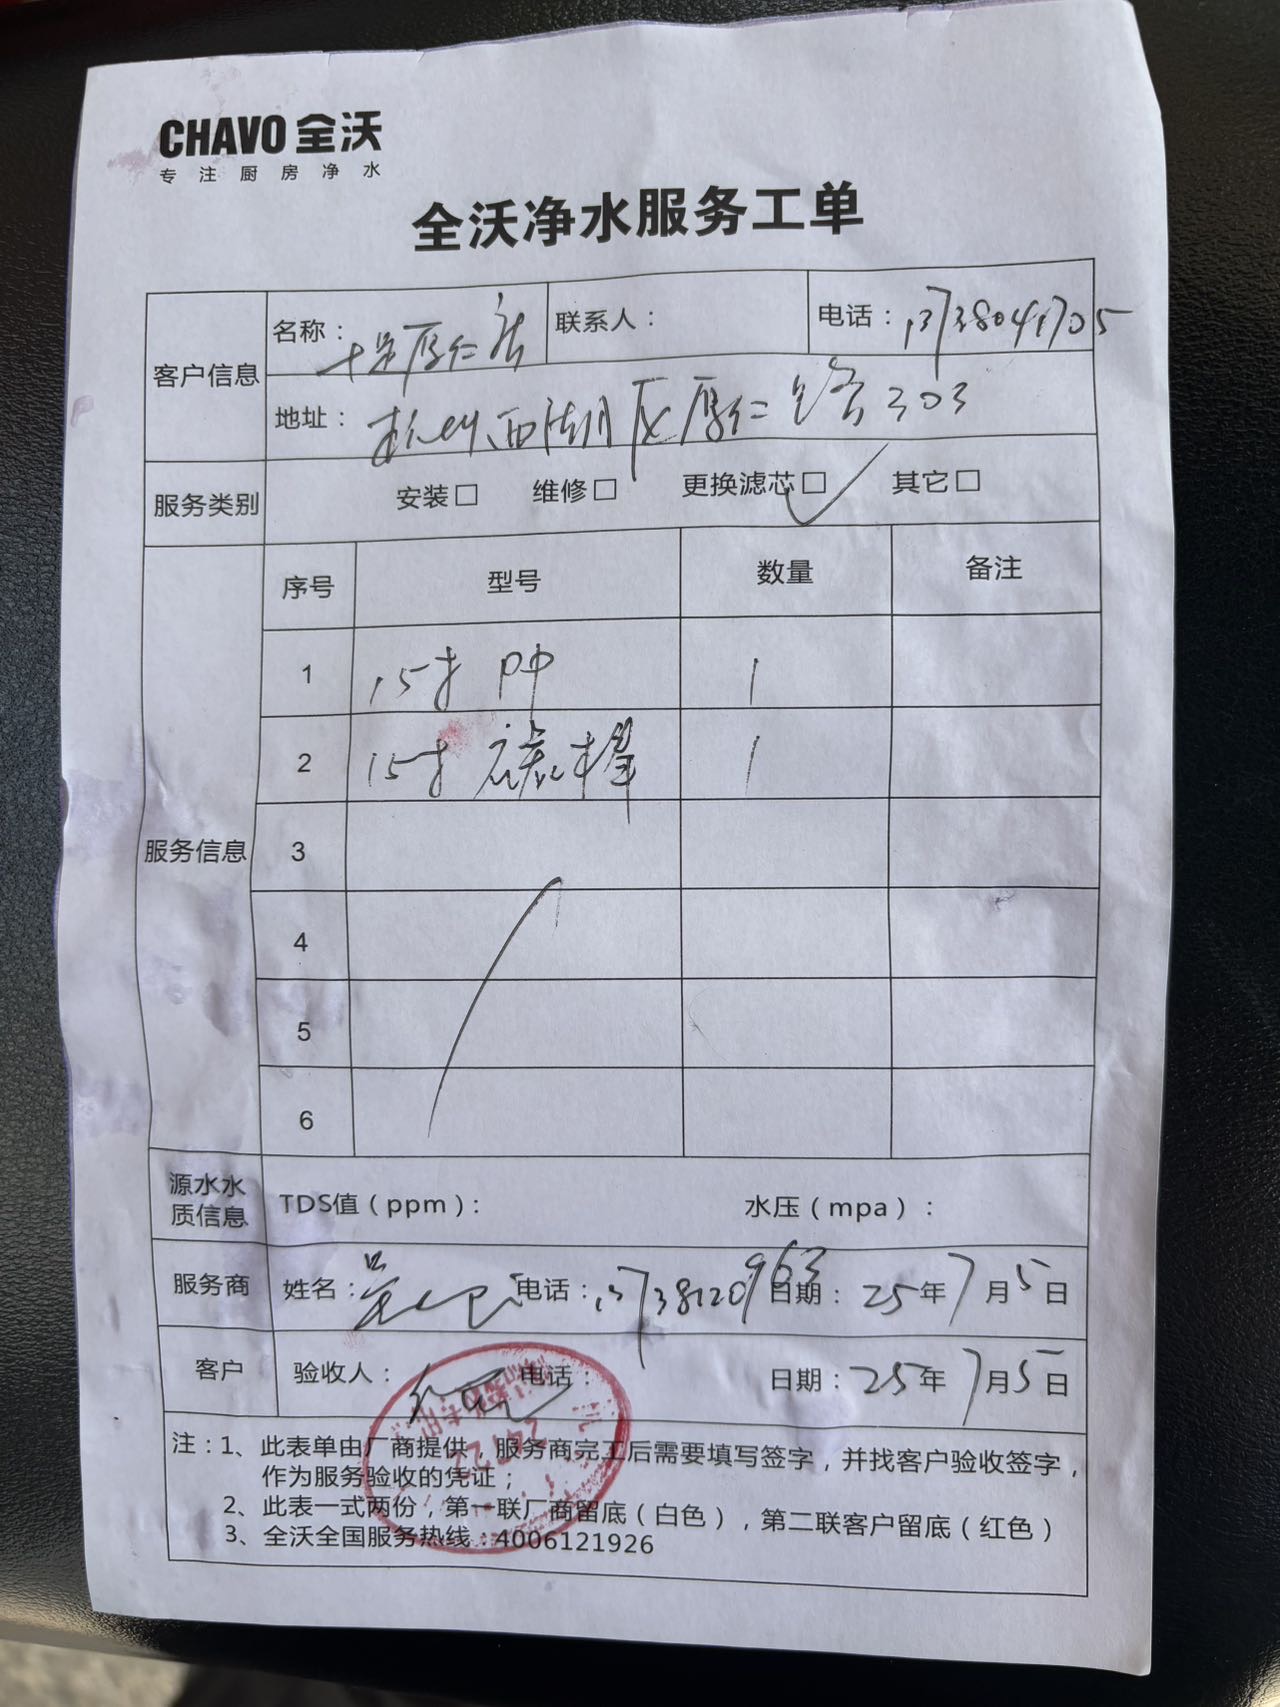 CHAVO 全沃
专注厨房净水
全沃净水服务工单
客户信息
名称： 厚仁店
联系人：
电话：13738041705
地址：杭州西湖区厚仁路303
服务类别
安装□ 维修□ 更换滤芯□ ✓ 其它□
服务信息
序号 型号 数量 备注
1 15寸 PP 1
2 15寸 碳棒 1
3
4
5
6
源水水质信息
TDS值（ppm）： 水压（mpa）：
服务商
姓名： 电话：13738120963 日期：25年7月5日
客户
验收人： 电话： 日期：25年7月5日
注：1、此表单由厂商提供，服务商完工后需要填写签字，并找客户验收签字，
作为服务验收的凭证；
2、此表一式两份，第一联厂商留底（白色），第二联客户留底（红色）
3、全沃全国服务热线：4006121926